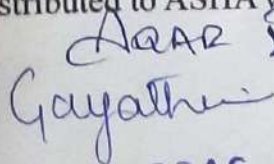 stributed to ASHA
AQAR
Gayathri